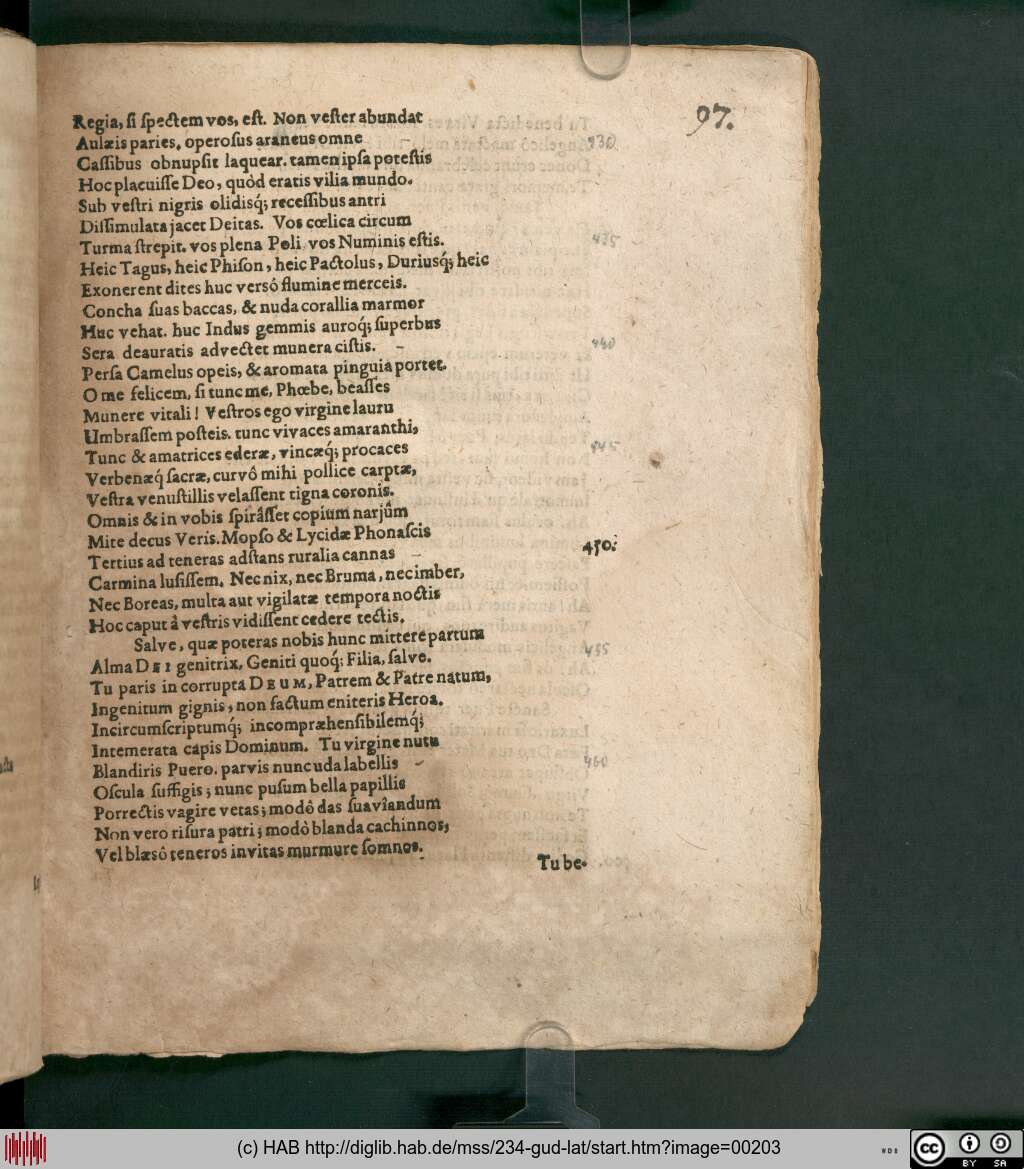 97.
Regia, ſi ſpectem vos, eſt. Non veſter abundat
Aulæis paries, operoſus araneus omne
430
Caſſibus obnupſit laquear. tamen ipſa poteſtis
Hoc placuiſſe Deo, quòd eratis vilia mundo.
Sub veſtri nigris olidisq́; receſſibus antri
Diſſimulata jacet Deitas. Vos cœlica circum
Turma ſtrepit. vos plena Poli vos Numinis eſtis.
435
Heic Tagus, heic Phiſon, heic Pactolus, Duriusq́; heic
Exonerent dites huc versô flumine merceis.
Concha ſuas baccas, & nuda corallia marmor
Huc vehat. huc Indus gemmis auroq́; ſuperbus
Sera deauratis advectet munera ciſtis.
440
Perſa Camelus opeis, & aromata pinguia portet.
O me felicem, ſi tunc me, Phœbe, beaſſes
Munere vitali! Veſtros ego virgine lauru
Umbraſſem poſteis. tunc vivaces amaranthi,
Tunc & amatrices ederæ, vincæq́; procaces
445
Verbenæq́ ſacræ, curvô mihi pollice carptæ,
Veſtra venuſtillis velaſſent tigna coronis.
Omnis & in vobis ſpirâſſet copium narjûm
Mite decus Veris. Mopſo & Lycidæ Phonaſcis
Tertius ad teneras adſtans ruralia cannas
450.
Carmina luſiſſem. Nec nix, nec Bruma, nec imber,
Nec Boreas, multa aut vigilatæ tempora noctis
Hoc caput â veſtris vidiſſent cedere tectis.
Salve, quæ poteras nobis hunc mittere partum
Alma DEI genitrix, Geniti quoq́; Filia, ſalve.
455
Tu paris in corrupta DEUM, Patrem & Patre natum,
Ingenitum gignis, non factum eniteris Heroa.
Incircumſcriptumq́; incompræhenſibilemq́;
Intemerata capis Dominum. Tu virgine nutu
Blandiris Puero. parvis nunc uda labellis
460
Oſcula ſuffigis; nunc puſum bella papillis
Porrectis vagire vetas; modô das ſuaviandum
Non vero riſura patri; modô blanda cachinnos,
Vel blæsô teneros invitas murmure ſomnos.
Tu be-
(c) HAB http://diglib.hab.de/mss/234-gud-lat/start.htm?image=00203
WDB
cc
BY SA